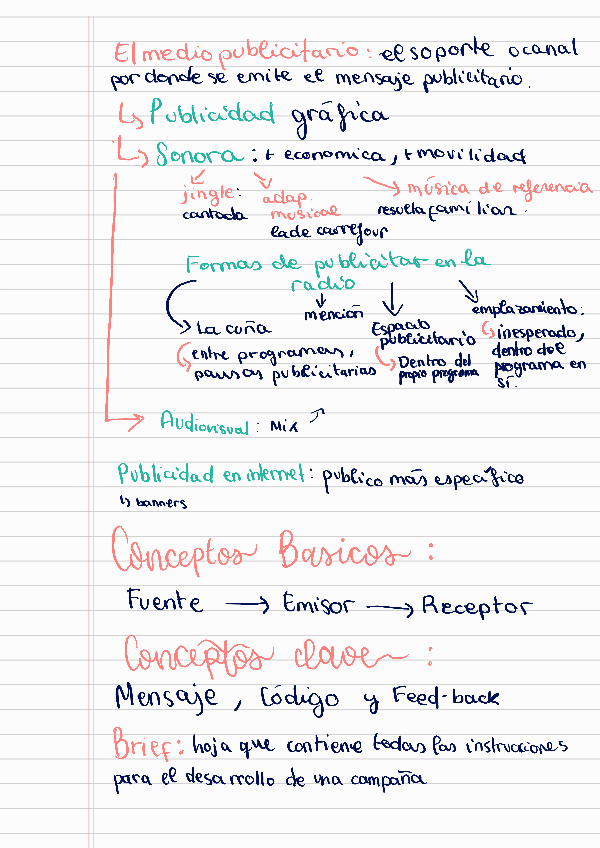 El medio publicitario: el soporte o canal
por donde se emite el mensaje publicitario.
↳ Publicidad gráfica
↳ Sonora: + economica, + movilidad
jingle: adap. música de referencia
cantada musical resulta familiar.
la de carrefour
Formas de publicitar en la
radio
mención emplazamiento:
La cuña Espacio publicitario inesperado,
entre programas, Dentro del dentro del
pausas publicitarias propio programa programa en
sí.
Audiovisual: Mix
Publicidad en internet: publico más específico
↳ banners
Conceptos Basicos:
Fuente → Emisor → Receptor
Conceptos clave:
Mensaje, Código y Feed-back
Brief: hoja que contiene todas las instrucciones
para el desarrollo de una campaña